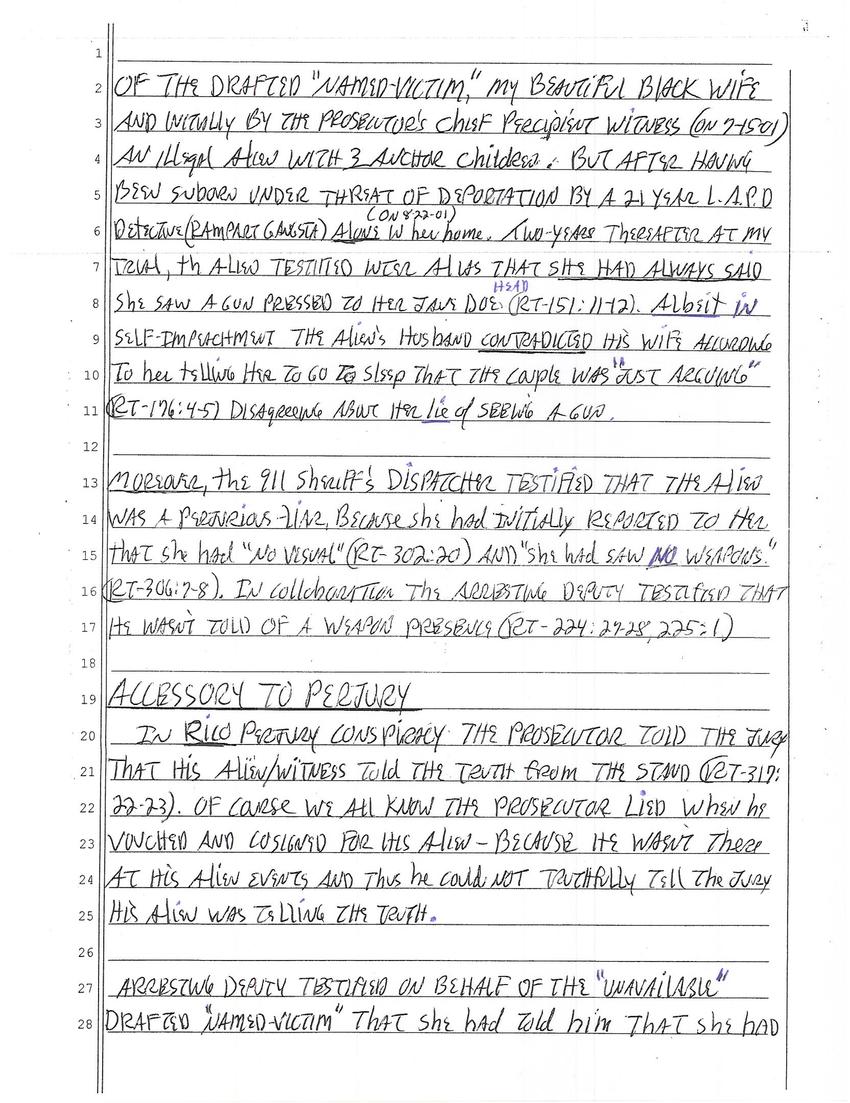 1
2 OF THE DRAFTED "NAMED-VICTIM," MY BEAUTIFUL BLACK WIFE
3 AND INITIALLY BY THE PROSECUTOR'S CHIEF PERCIPIENT WITNESS (ON 7-15-01)
4 AN IllEgAl AliEN WITH 3 ANCHOR ChildREN. BUT AFTER HAVING
5 BEEN SUBORN UNDER THREAT OF DEPORTATION BY A 21 YEAR L.A.P.D
(ON 8-22-01)
6 DETECTIVE (RAMPART GANGSTA) ALONE IN her home. TWO-YEARS THEREAFTER AT MY
7 TRIAL, th ALIEN TESTIFIED UNDER ALIAS THAT SHE HAD ALWAYS SAID
HEAD
8 SHE SAW A GUN PRESSED TO HER JANE DOE (RT-151:11-12). Albeit IN
9 SELF-IMPEACHMENT THE Alien's HUSBAND CONTRADICTED HIS WIFE ACCORDING
10 To her telling HER TO GO TO SlEEp THAT THE COUPLE WAS "JUST ARGUING"
11 (RT-176:4-5) DISAgREEINg ABOUT HER lie of SEEING A GUN.
12
13 MOREOVER, the 911 SHERIFF'S DISPATCHER TESTIFIED THAT THE AliEN
14 WAS A PERJURIOUS-LIAR, BECAUSE she had INITIALLY REPORTED TO HER
15 that she had "NO VISUAL" (RT-302:20) AND "she had SAW NO WEAPONS."
16 (RT-306:7-8). IN COllABORATION THE ARRESTING DEPUTY TESTIFIED THAT
17 HE WASN'T TOLD OF A WEAPON PRESENCE (RT-224:27-28, 225:1)
18
19 ACCESSORY TO PERJURY
20 IN RICO PERJURY CONSPIRACY THE PROSECUTOR TOLD THE JURY
21 THAT HIS ALIEN/WITNESS TOld THE TRUTH from THE STAND (RT-317:
22 22-23). OF COURSE WE All KNOW THE PROSECUTOR LIED when he
23 VOUCHED AND COSIGNED FOR HIS ALIEN - BECAUSE HE WASN'T There
24 AT HIS ALIEN EVENTS AND Thus he could NOT TRUTHFULLY TEll The JURY
25 HIS ALIEN WAS TELLING THE TRUTH.
26
27 ARRESTING DEPUTY TESTIFIED ON BEHALF OF THE "UNAVAILABLE"
28 DRAFTED "NAMED-VICTIM" THAT she had Told him THAT she HAD